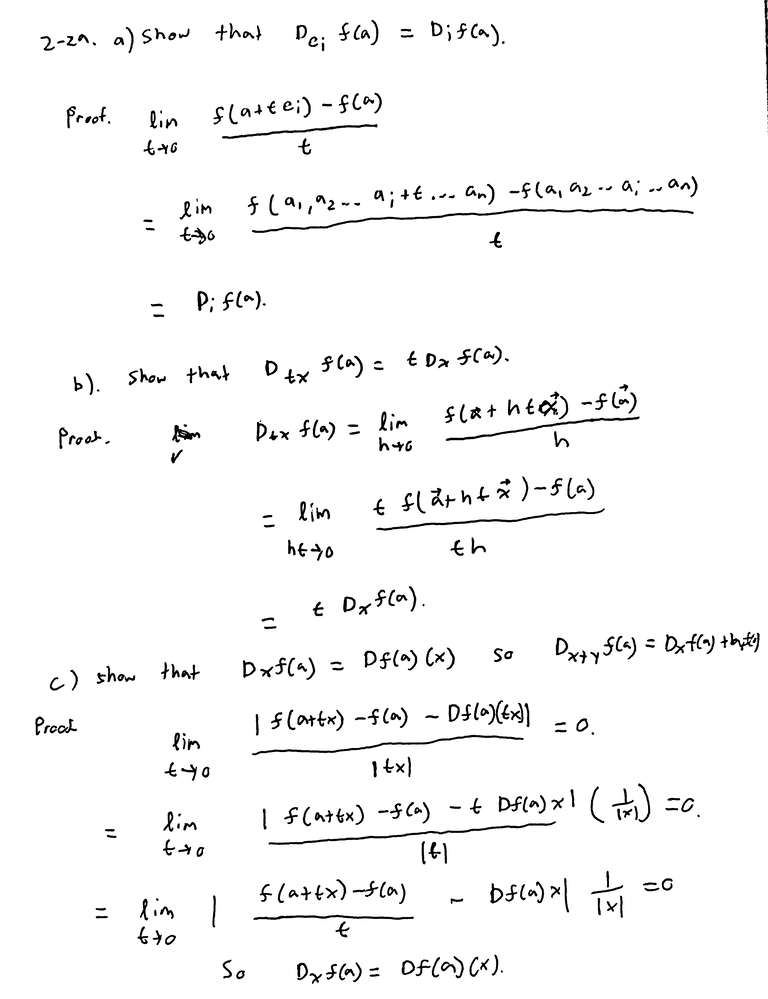 2-29. a) Show that D_{e_i} f(a) = D_i f(a).
Proof. lim_{t→0} \frac{f(a+te_i) - f(a)}{t}
= lim_{t→0} \frac{f(a_1, a_2 ... a_i+t ... a_n) - f(a_1 a_2 ... a_i ... a_n)}{t}
= D_i f(a).
b). Show that D_{tx} f(a) = t D_x f(a).
Proof. D_{tx} f(a) = lim_{h→0} \frac{f(a + ht\vec{x}) - f(\vec{a})}{h}
= lim_{ht→0} \frac{t f(\vec{a} + ht\vec{x}) - f(a)}{th}
= t D_x f(a).
c) show that D_x f(a) = Df(a)(x) so D_{x+y} f(a) = D_x f(a) + D_y f(a)
Proof lim_{t→0} \frac{|f(a+tx) - f(a) - Df(a)(tx)|}{|tx|} = 0.
= lim_{t→0} \frac{|f(a+tx) - f(a) - t Df(a) x|}{|t|} (\frac{1}{|x|}) = 0.
= lim_{t→0} | \frac{f(a+tx) - f(a)}{t} - Df(a) x| \frac{1}{|x|} = 0
So D_x f(a) = Df(a)(x).